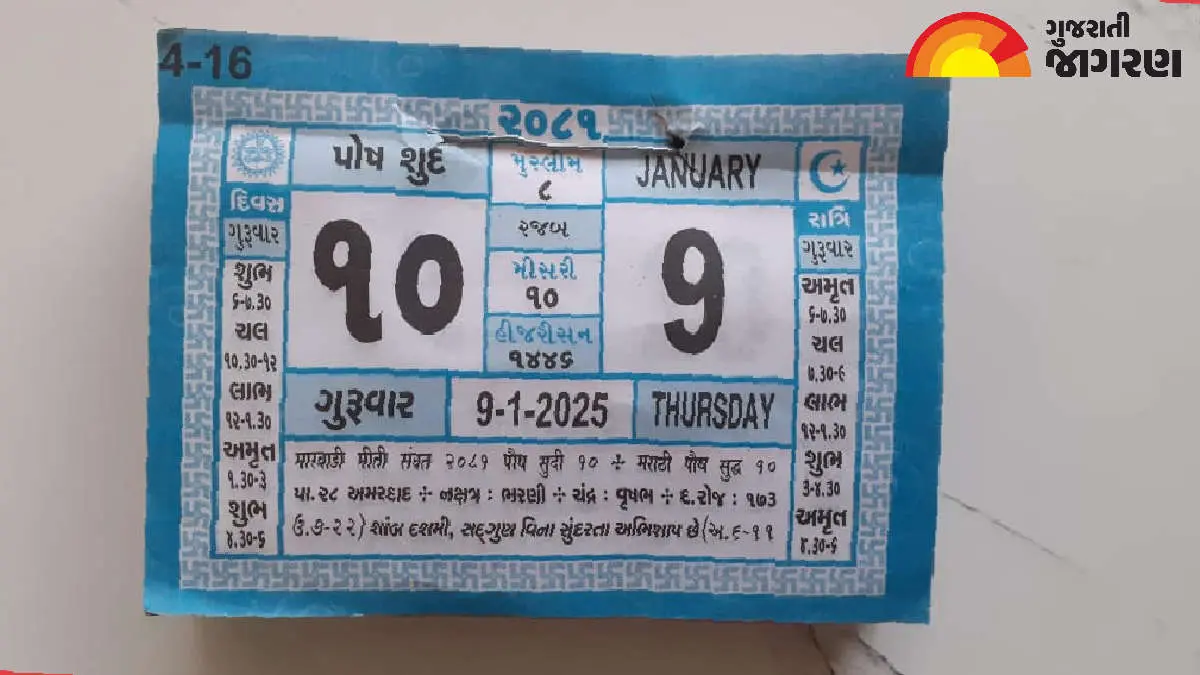 ગુજરાતી
જાગરણ
4-16
૨૦૮૧
પોષ શુદ
૧૦
મુસ્લીમ
૮
રજબ
મીસરી
૧૦
હીજરીસન
૧૪૪૬
JANUARY
9
દિવસ
ગુરૂવાર
શુભ
૬-૭.૩૦
ચલ
૧૦.૩૦-૧૨
લાભ
૧૨-૧.૩૦
અમૃત
૧.૩૦-૩
શુભ
૪.૩૦-૬
રાત્રિ
ગુરૂવાર
અમૃત
૬-૭.૩૦
ચલ
૭.૩૦-૯
લાભ
૧૨-૧.૩૦
શુભ
૩-૪.૩૦
અમૃત
૪.૩૦-૬
ગુરૂવાર
9-1-2025
THURSDAY
मारवाडी मीती संवत २०८१ पौष सुदी १० ÷ मराठी पौष सुद्ध १०
પા.૨૮ અમરદાદ ÷ નક્ષત્ર : ભરણી ÷ ચંદ્ર : વૃષભ ÷ દ.રોજ : ૧૭૩
ઉ.૭-૨૨) શાંબ દશમી, સદ્‌ગુણ વિના સુંદરતા અભિશાપ છે (અ.૬-૧૧